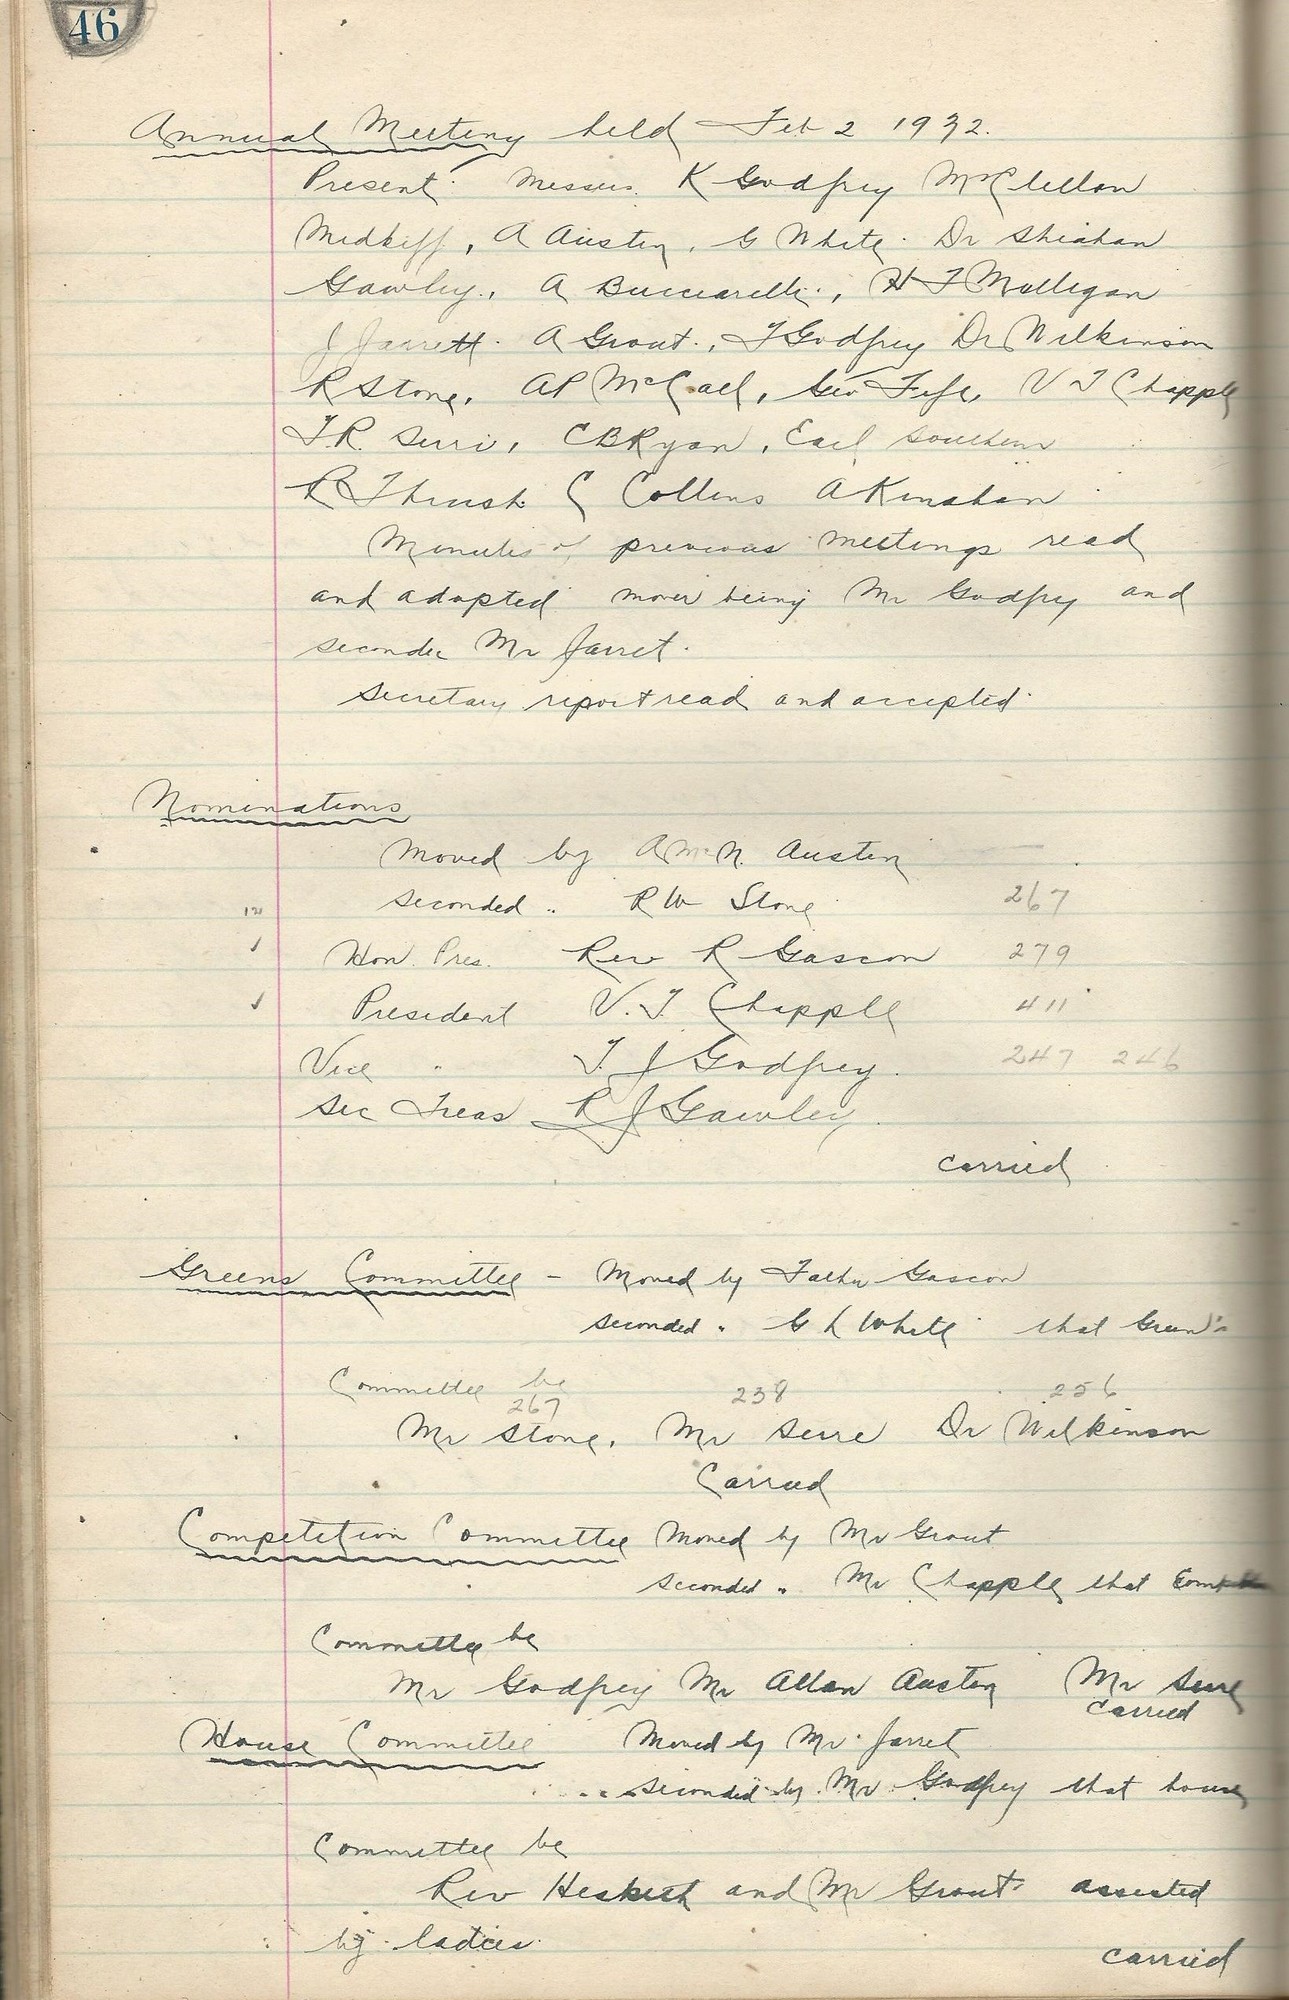 46
Annual Meeting held Feb 2 1932.
Present. Messers. K Godfrey McClellan
Midkiff, A Austin, G White. Dr Sheahan
Gawley, A Bucciarelli, H T Mulligan
J Jarrett. A Grout., T Godfrey Dr Wilkinson
R Stone, AP McCall, Geo Fife, V T Chapple
T.R. Serri, CB Ryan, Earl Southern
R Thrush C Collins A Kinshan
Minutes of previous meetings read
and adopted mover being Mr Godfrey and
seconder Mr Jarret.
Secretary report read and accepted.
Nominations
Moved by A McN. Austin
seconded " R W Stone 267
Hon. Pres. Rev R Gascon 279
President V. T. Chapple 411
Vice " T. J Godfrey. 247 246
Sec Treas R J Gawley.
carried
Greens Committee - Moved by Father Gascon
seconded " G L White that Green's
Committee be
267 238 256
Mr Stone, Mr Serre Dr Wilkinson
Carried
Competition Committee Moved by Mr Grout
seconded " Mr Chapple that
Committee be
Mr Godfrey Mr Allan Austin Mr Serre
carried
House Committee Moved by Mr. Jarret
seconded by Mr Godfrey that house
Committee be
Rev Heskett and Mr Grout assisted
by ladies.
carried